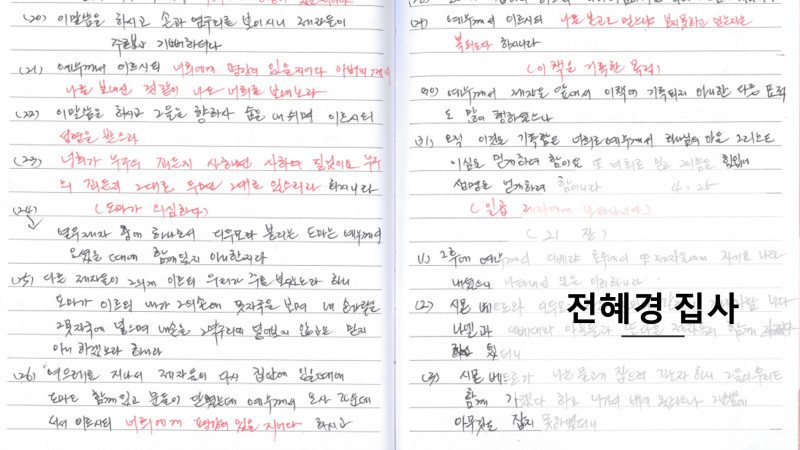 (20) 이말씀을 하시고 손과 옆구리를 보이시니 제자들이
주를보고 기뻐하더라
(21) 예수께서 이르시되 너희에게 평강이 있을지어다 아버지께서
나를 보내신 것같이 나도 너희를 보내노라
(22) 이말씀을 하시고 그들을 향하사 숨을 내쉬며 이르시되
성령을 받으라
(23) 너희가 누구의 죄든지 사하면 사하여 질것이요 누구
의 죄든지 그대로 두면 그대로 있으리라 하시니라
(24) (도마가 의심하다)
열두제자 중에 하나로서 디두모라 불리는 도마는 예수께서
오셨을 때에 함께있지 아니한지라
(25) 다른 제자들이 그에게 이르되 우리가 주를 보았노라 하니
도마가 이르되 내가 그의손에 못자국을 보며 내 손가락을
그못자국에 넣으며 내손을 그옆구리에 넣어보지 않고는 믿지
아니 하겠노라 하니라
(26) 여드레를 지나서 제자들이 다시 집안에 있을때에
도마도 함께 있고 문들이 닫혔는데 예수께서 오사 가운데
서서 이르시되 너희에게 평강이 있을 지어다 하시고
(29) 예수께서 이르시되 너는 나를 본고로 믿느냐 보지못하고 믿는자들은
복되도다 하시니라
(이 책을 기록한 목적)
(30) 예수께서 제자들 앞에서 이책에 기록되지 아니한 다른 표적
도 많이 행하셨으나
(31) 오직 이것을 기록함은 너희로 예수께서 하나님의 아들 그리스도
이심을 믿게하려 함이요 또 너희로 믿고 그이름을 힘입어
생명을 얻게하려 함이니라 4.25
(일곱 제자에게 나타나시다)
(21 장)
1) 그후에 예수께서 디베랴 호수에서 또 제자들에게 자기를 나타
내셨으니 나타내신 일은 이러하니라
(2) 시몬 베드로와
나엘과 세베대의 아들들과 또다른 제자 둘이 함께
있더니
(3) 시몬 베드로가 나는 물고기 잡으러 가노라 하니 그들이 우리도
함께 가겠다 하고 나가서 배에 올랐으나 그날밤에
아무것도 잡지 못하였더니
전혜경 집사